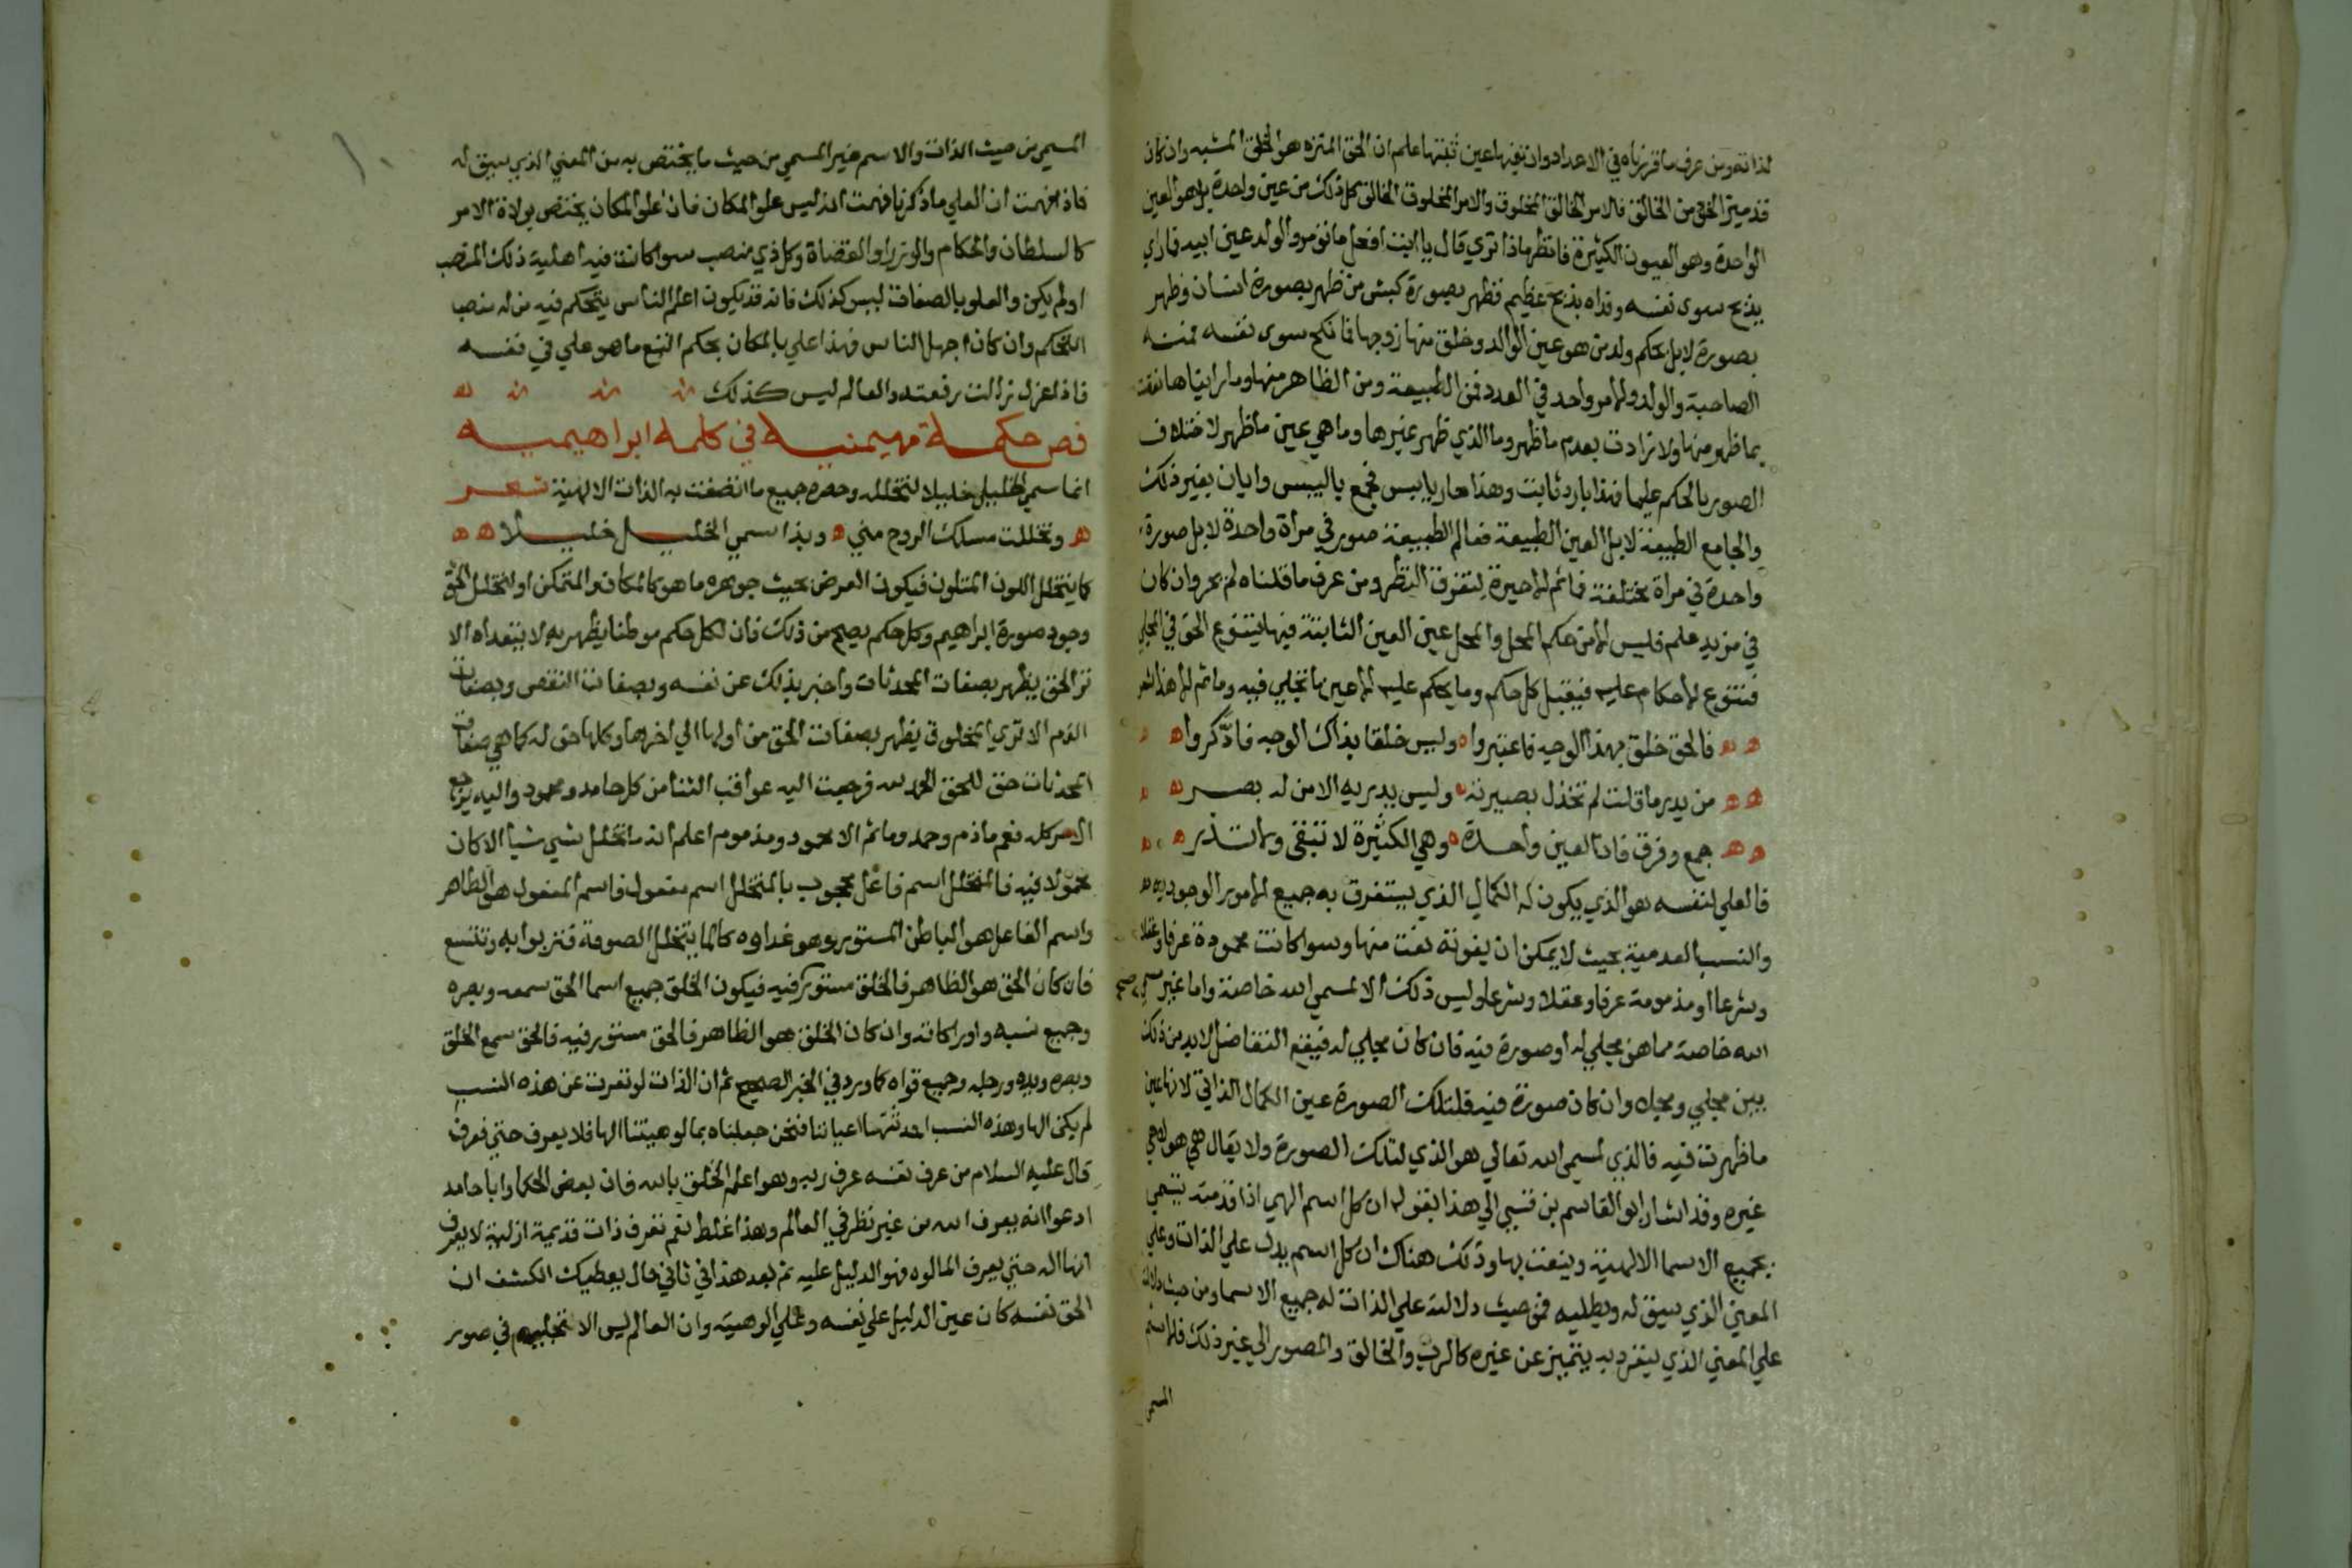 لذاته ومن عرف ما قررناه في الاعداد وان نفيها عين ثبتها علم ان الحق المنزه هو الخلق المشبه وان كان
قد ميز الخلق من الخالق فالامر الخالق المخلوق والامر المخلوق الخالق كل ذلك من عين واحدة بل هو العين
الواحدة وهو العيون الكثيرة فانظر ماذا تري قال يا ابت افعل ما تؤمر والولد عين ابيه فما راي
يذبح سوى نفسه وفداه بذبح عظيم فظهر بصورة كبش من ظهر بصورة انسان وظهر
بصورة لا بل بحكم ولد من هو عين الوالد وخلق منها زوجها فما نكح سوى نفسه فمنه
الصاحبة والولد والامر واحد في العدد فمن الطبيعة ومن الظاهر منها وما رايناها نقصت
بما ظهر منها ولا زادت بعدم ما ظهر وما الذي ظهر غيرها وما هي عين ما ظهر لاختلاف
الصور بالحكم عليها فهذا بارد يابس وهذا حار يابس فجمع باليبس وابان بغير ذلك
والجامع الطبيعة لا بل العين الطبيعة فعالم الطبيعة صور في مرأة واحدة لا بل صورة
واحدة في مراة مختلفة فما ثم الا حيرة لتفرق النظر ومن عرف ما قلناه لم يحر وان كان
في مزيد علم فليس الا من حكم المحل والمحل عين العين الثابتة فيها يتنوع الحق في المجلي
فتتنوع الاحكام عليه فيقبل كل حكم وما يحكم عليه الا عين ما تجلي فيه وما ثم الا هذا شعر
فالحق خلق بهذا الوجه فاعتبروا ه وليس خلقا بذاك الوجه فادّكروا
من يدر ما قلت لم تخذل بصيرته ه وليس يدريه الا من له بصر
جمع وفرق فان العين واحدة ه وهي الكثيرة لا تبقى ولا تذر
فالعلي لنفسه هو الذي يكون له الكمال الذي يستغرق به جميع الامور الوجوديه
والنسب العدمية بحيث لا يمكن ان يفوته نعت منها وسوا كانت محمودة عرفا وعقلا
وشرعا او مذمومة عرفا وعقلا وشرعا وليس ذلك الا لمسمي الله خاصة واما غير مسمي
الله خاصة مما هو مجلي له او صورة فيه فان كان مجلي له فيقع التفاضل لا بد من ذلك
بين مجلي ومجلى وان كان صورة فيه فلتلك الصورة عين الكمال الذاتي لانها عين
ما ظهرت فيه فالذي لمسمى الله تعالي هو الذي لتلك الصورة ولا يقال هي هو ولا هي
غيره وقد اشار ابو القاسم بن قسي الي هذا بقوله ان كل اسم الهي اذا قدمته يتسمي
بجميع الاسما الالهية وينعت بها وذلك هناك ان كل اسم يدل علي الذات وعلي
المعني الذي سيق له ويطلبه فمن حيث دلالته علي الذات له جميع الاسما ومن حيث دلالته
علي المعني الذي ينفرد به يتميز عن غيره كالرب والخالق والمصور الي غير ذلك فالاسم
المسمي
المسمي من حيث الذات والاسم غير المسمي من حيث ما يختص به من المعني الذي سيق له
فاذا فهمت ان العلي ما ذكرنا فهمت انه ليس علو المكان فان علو المكان يختص بولاة الامر
كالسلطان والحكام والوزرا والقضاة وكل ذي منصب سوا كانت فيه اهلية ذلك المنصب
او لم يكن والعلو بالصفات ليس كذلك فانه قد يكون اعلم الناس يتحكم فيه من له منصب
التحكم وان كان اجهل الناس فهذا علي بالمكان بحكم التبع ما هو علي في نفسه
فاذا عزل زالت رفعته والعالم ليس كذلك
فص حكمة مهيمنيه في كلمة ابراهيميه
انما سمي الخليل خليلا لتخلله وحصره جميع ما اتصفت به الذات الالهية شعر
وتخللت مسلك الروح مني ه وبذا سمي الخليل خليلا
كما يتخلل اللون المتلون فيكون العرض بحيث جوهره ما هو كالمكان والمتمكن او لتخلل الحق
وجود صورة ابراهيم وكل حكم يصح من ذلك فان لكل حكم موطنا يظهر به لا يتعداه الا
تر الحق يظهر بصفات المحدثات واخبر بذلك عن نفسه وبصفات النقص وبصفات
الذم الا تري المخلوق يظهر بصفات الحق من اولها الي اخرها وكلها حق له كما هي صفات
المحدثات حق للحق الحمد لله فرجعت اليه عواقب الثنا من كل حامد ومحمود واليه يرجع
الامر كله فعم ما ذم وحمد وما ثم الا محمود ومذموم اعلم انه ما تخلل شي شيأ الا كان
محمولا فيه فالمتخلل اسم فاعل محجوب بالمتخلل اسم مفعول فاسم المفعول هو الظاهر
واسم الفاعل هو الباطن المستور وهو غذاوه كالما يتخلل الصوفة فتربوا به وتتسع
فان كان الحق هو الظاهر فالخلق مستور فيه فيكون الخلق جميع اسما الحق سمعه وبصره
وجميع نسبه وادراكاته وان كان الخلق هو الظاهر فالحق مستور فيه فالحق سمع الخلق
وبصره ويده ورجله وجميع قواه كما ورد في الخبر الصحيح ثم ان الذات لو تعرت عن هذه النسب
لم يكن الها وهذه النسب احدثتها اعياننا فنحن جعلناه بمالوهيتنا الها فلا يعرف حتي نعرف
قال عليه السلام من عرف نفسه عرف ربه وهو اعلم الخلق بالله فان بعض الحكما وابا حامد
ادعوا انه يعرف الله من غير نظر في العالم وهذا غلط نعم تعرف ذات قديمة ازلية لا يعرف
انها اله حتي يعرف المالوه فهو الدليل عليه ثم بعد هذا في ثاني حال يعطيك الكشف ان
الحق نفسه كان عين الدليل علي نفسه وعلي الوهيته وان العالم ليس الا تجليه في صور